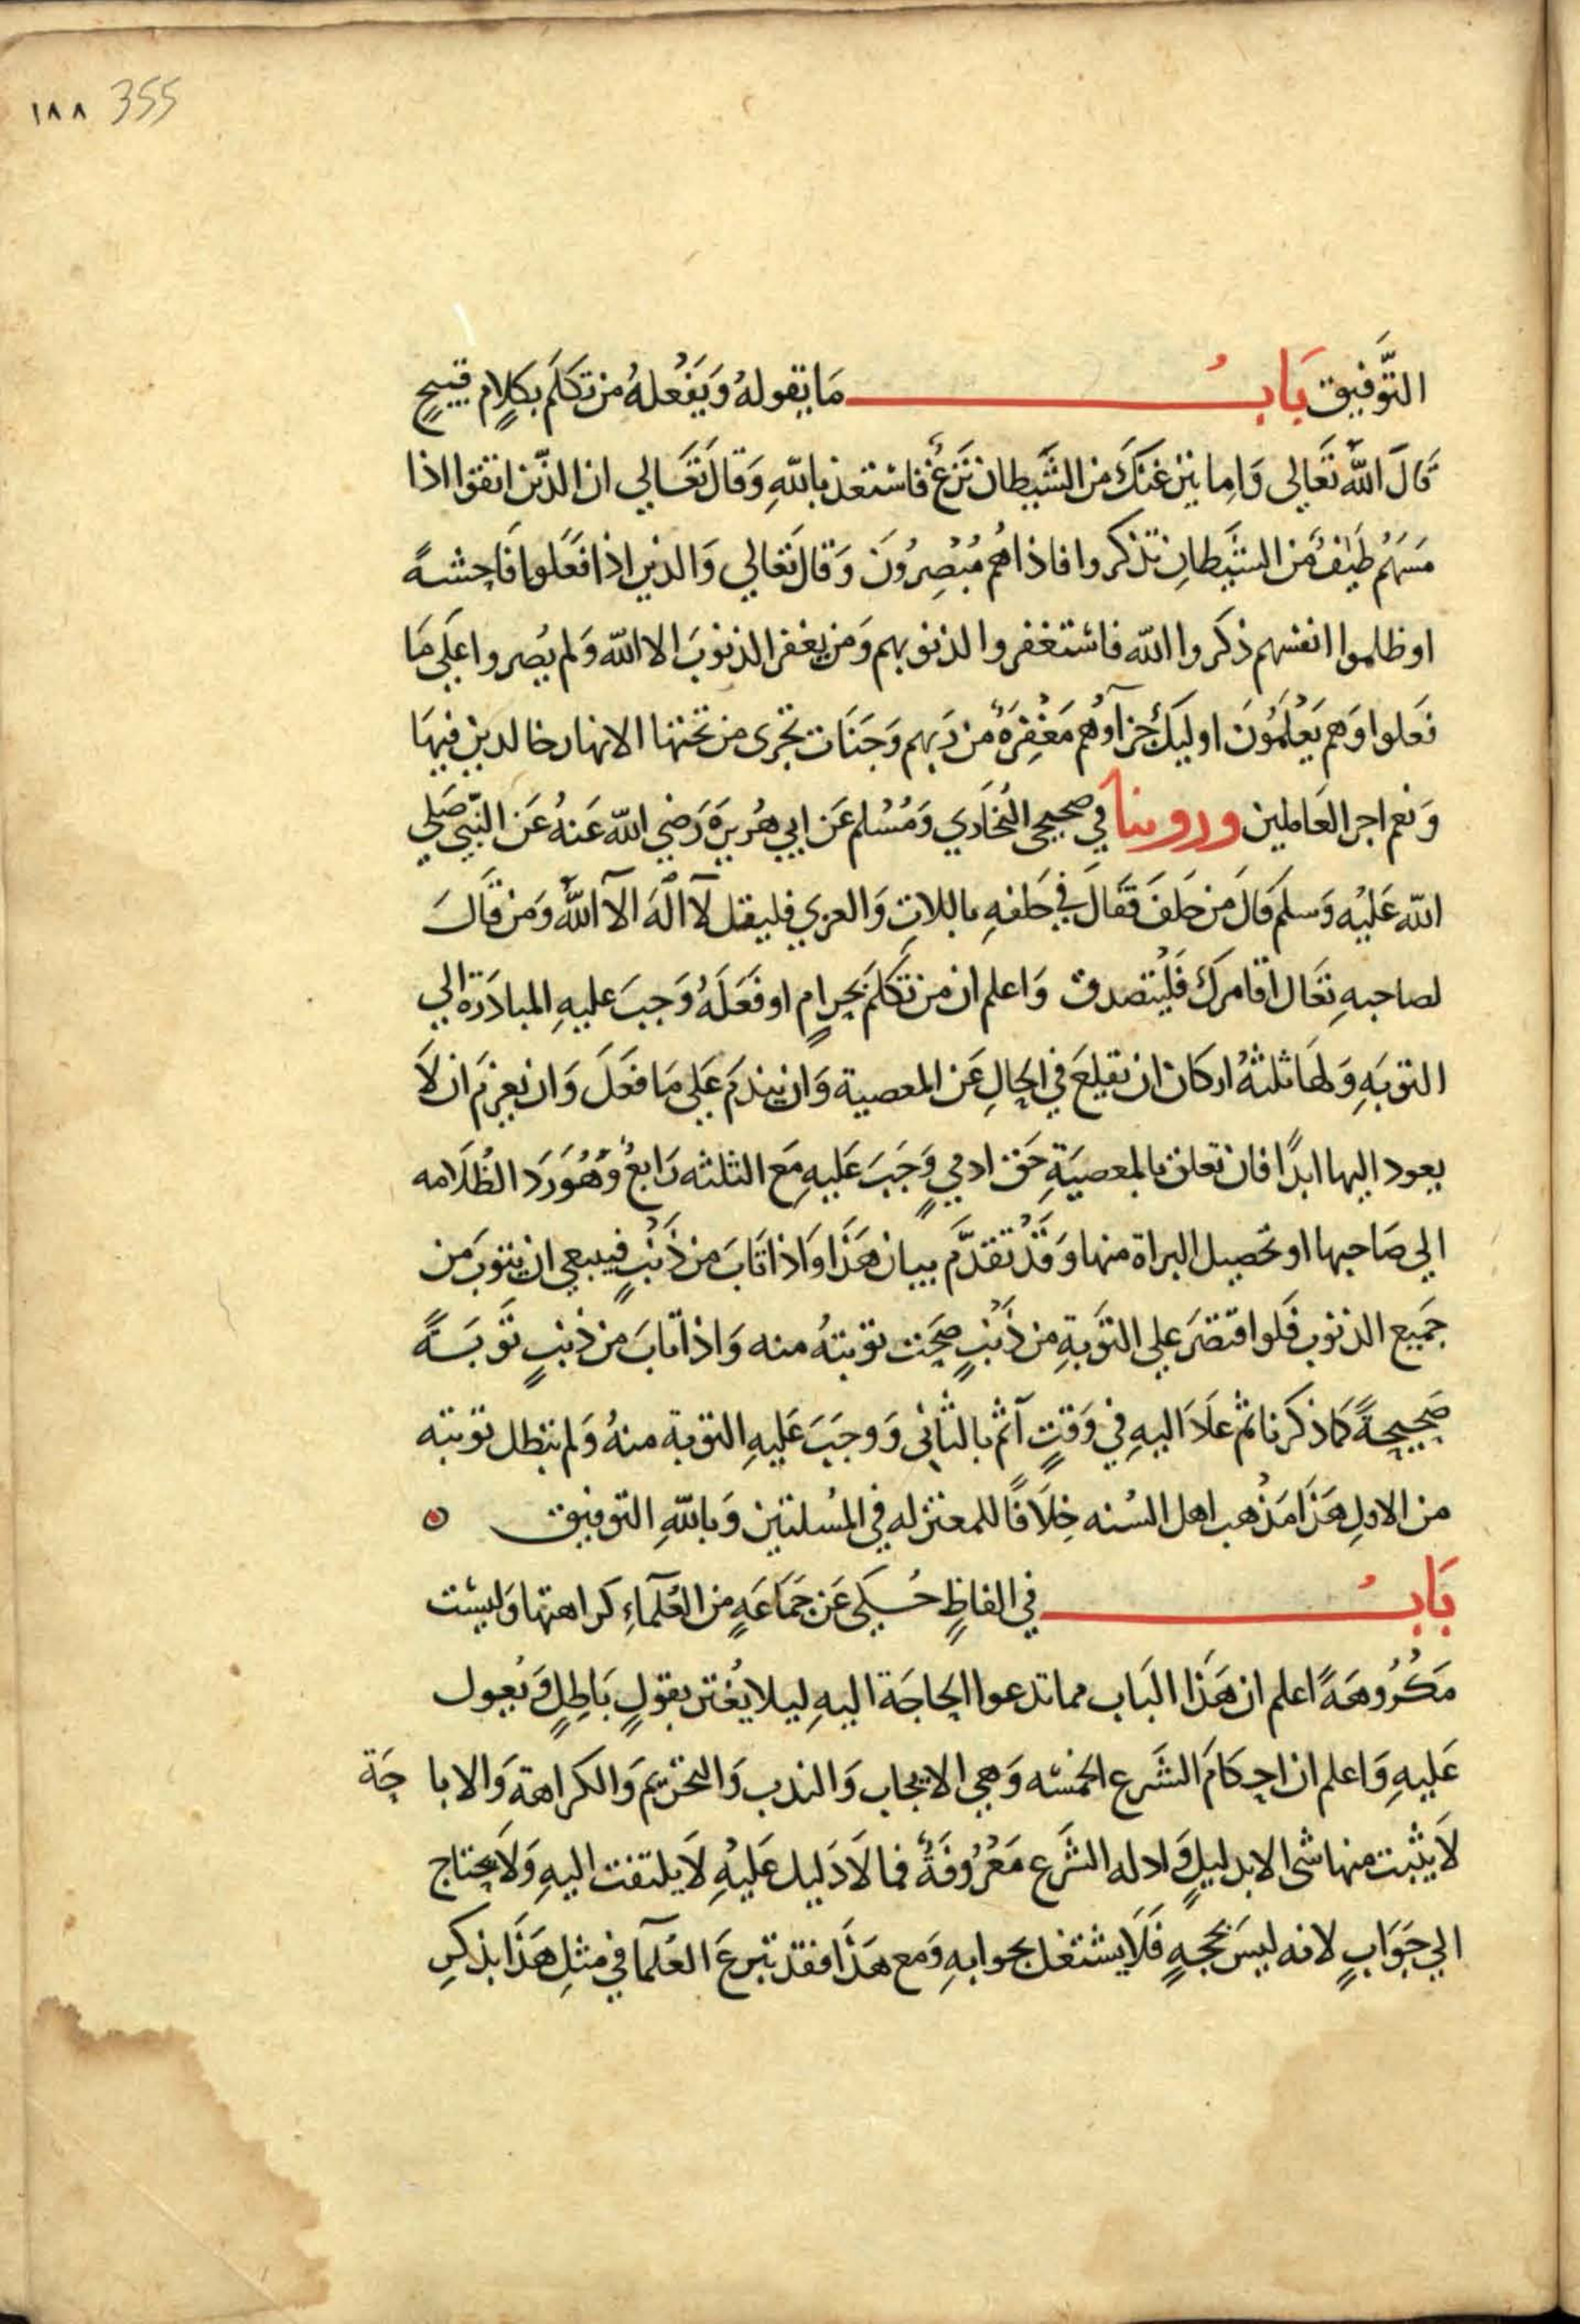 ١٨٨ 355
التَّوفيق بَابُ مَا يقولهُ وَيَفْعلهُ من تكلَم بكلامٍ قبيحٍ
قَالَ اللهُ تَعَالى وَاِما ينزغنكَ من الشَيطان نَزغٌ فاستعذ باللهِ وَقالَ تعَالي ان الذّين اتقوا اذا
مسَهُم طَيفٌ مّن الشَيطانِ تذكروا فاذا هُم مُبْصِرُونَ وَقالَ تعَالي وَالذين اذا فعَلوا فَاحِشةً
او ظلموا انفسهم ذكروا الله فاستغفروا لذنوبهم وَمن يغفر الذنوبَ الا الله وَلم يُصروا علَى مَا
فعَلوا وَهم يَعْلَمُونَ اوليكَ جزآؤهُم مَغْفِرَةٌ من رَبهم وَجَنَات تجرى من تحتها الانهار خالدين فيهَا
وَنعم اجر العَاملين وروينا في صحيحي البُخَاري وَمُسْلم عَن ابي هُريرَة رَضي الله عَنهُ عَن النَبّي صَلي
الله عَليْه وَسلم قالَ من حَلفَ فقَالَ في حَلفهِ باللاتِ وَالعزي فليقل لآ الهَ الآ اللهُ وَمن قالَ
لصاحبهِ تعَال اقامركَ فَليْتصدق وَاعلم ان من تكلَمَ بحرامٍ او فعَلَهُ وَجبَ عليهِ المبادَرة الي
التوبَةِ وَلهَا ثلثهُ اركان ان يقلعَ في الحالِ عَن المعصية وَان يندمَ عَلي مَا فعَلَ وَان يعزمَ ان لَا
يعود اليها ابدًا فان تعلق بالمعصيَةِ حَق ادميٍ وَجَبَ عَليهِ مَع الثلثه رَابعٌ وَهُوَ رَد الظُلَامه
الي صَاحبها او تحصيل البراة منها وَقَدْ تقدَّم بيان هَذا وَاذا تَابَ من ذَنْبٍ فينبغي ان يتوبَ من
جَميع الذنوب فلَو اقتصَرَ علي التوَبةِ من ذَنْبٍ صحَت توبتهُ منه وَاذا تابَ من ذنبٍ توَبَةً
صَحيحةً كما ذكرنا ثم عَادَ اليهِ في وَقتٍ آثم بالثَاني وَوجَبَ عَليهِ التوبة منهُ وَلم تبطل توبته
من الاولِ هَذَا مَذْهب اهل السُنه خِلَافًا للمعتزله في المُسلتين وَباللهِ التوفيق
بَابُ في الفاظٍ حُكى عَن جَمَاعَةٍ من العُلَمآءِ كراهتها وَليسْت
مَكْرُوهَةً اعلم ان هَذا البَاب مما تدعوا الحاجَة اليهِ ليلا يُغتر بقولٍ بَاطِلٍ وَيُعول
عَليهِ وَاعلم ان احكامَ الشَرع الخمْسه وَهي الايجاب وَالندب وَالتحريم وَالكراهة وَالابا حَة
لَا يثبت منها شى الا بدليلٍ وَادله الشَرع مَعْرُوفَةٌ فما لَا دَليل عَليهِ لَا يلتفت اليهِ وَلَا يحتاج
الي جَوَابٍ لانه ليسَ بحجهٍ فَلَا يشتغل بجوابهِ وَمع هَذا فقد تبرعَ العُلمآ في مثلِ هَذَا بذكرِ